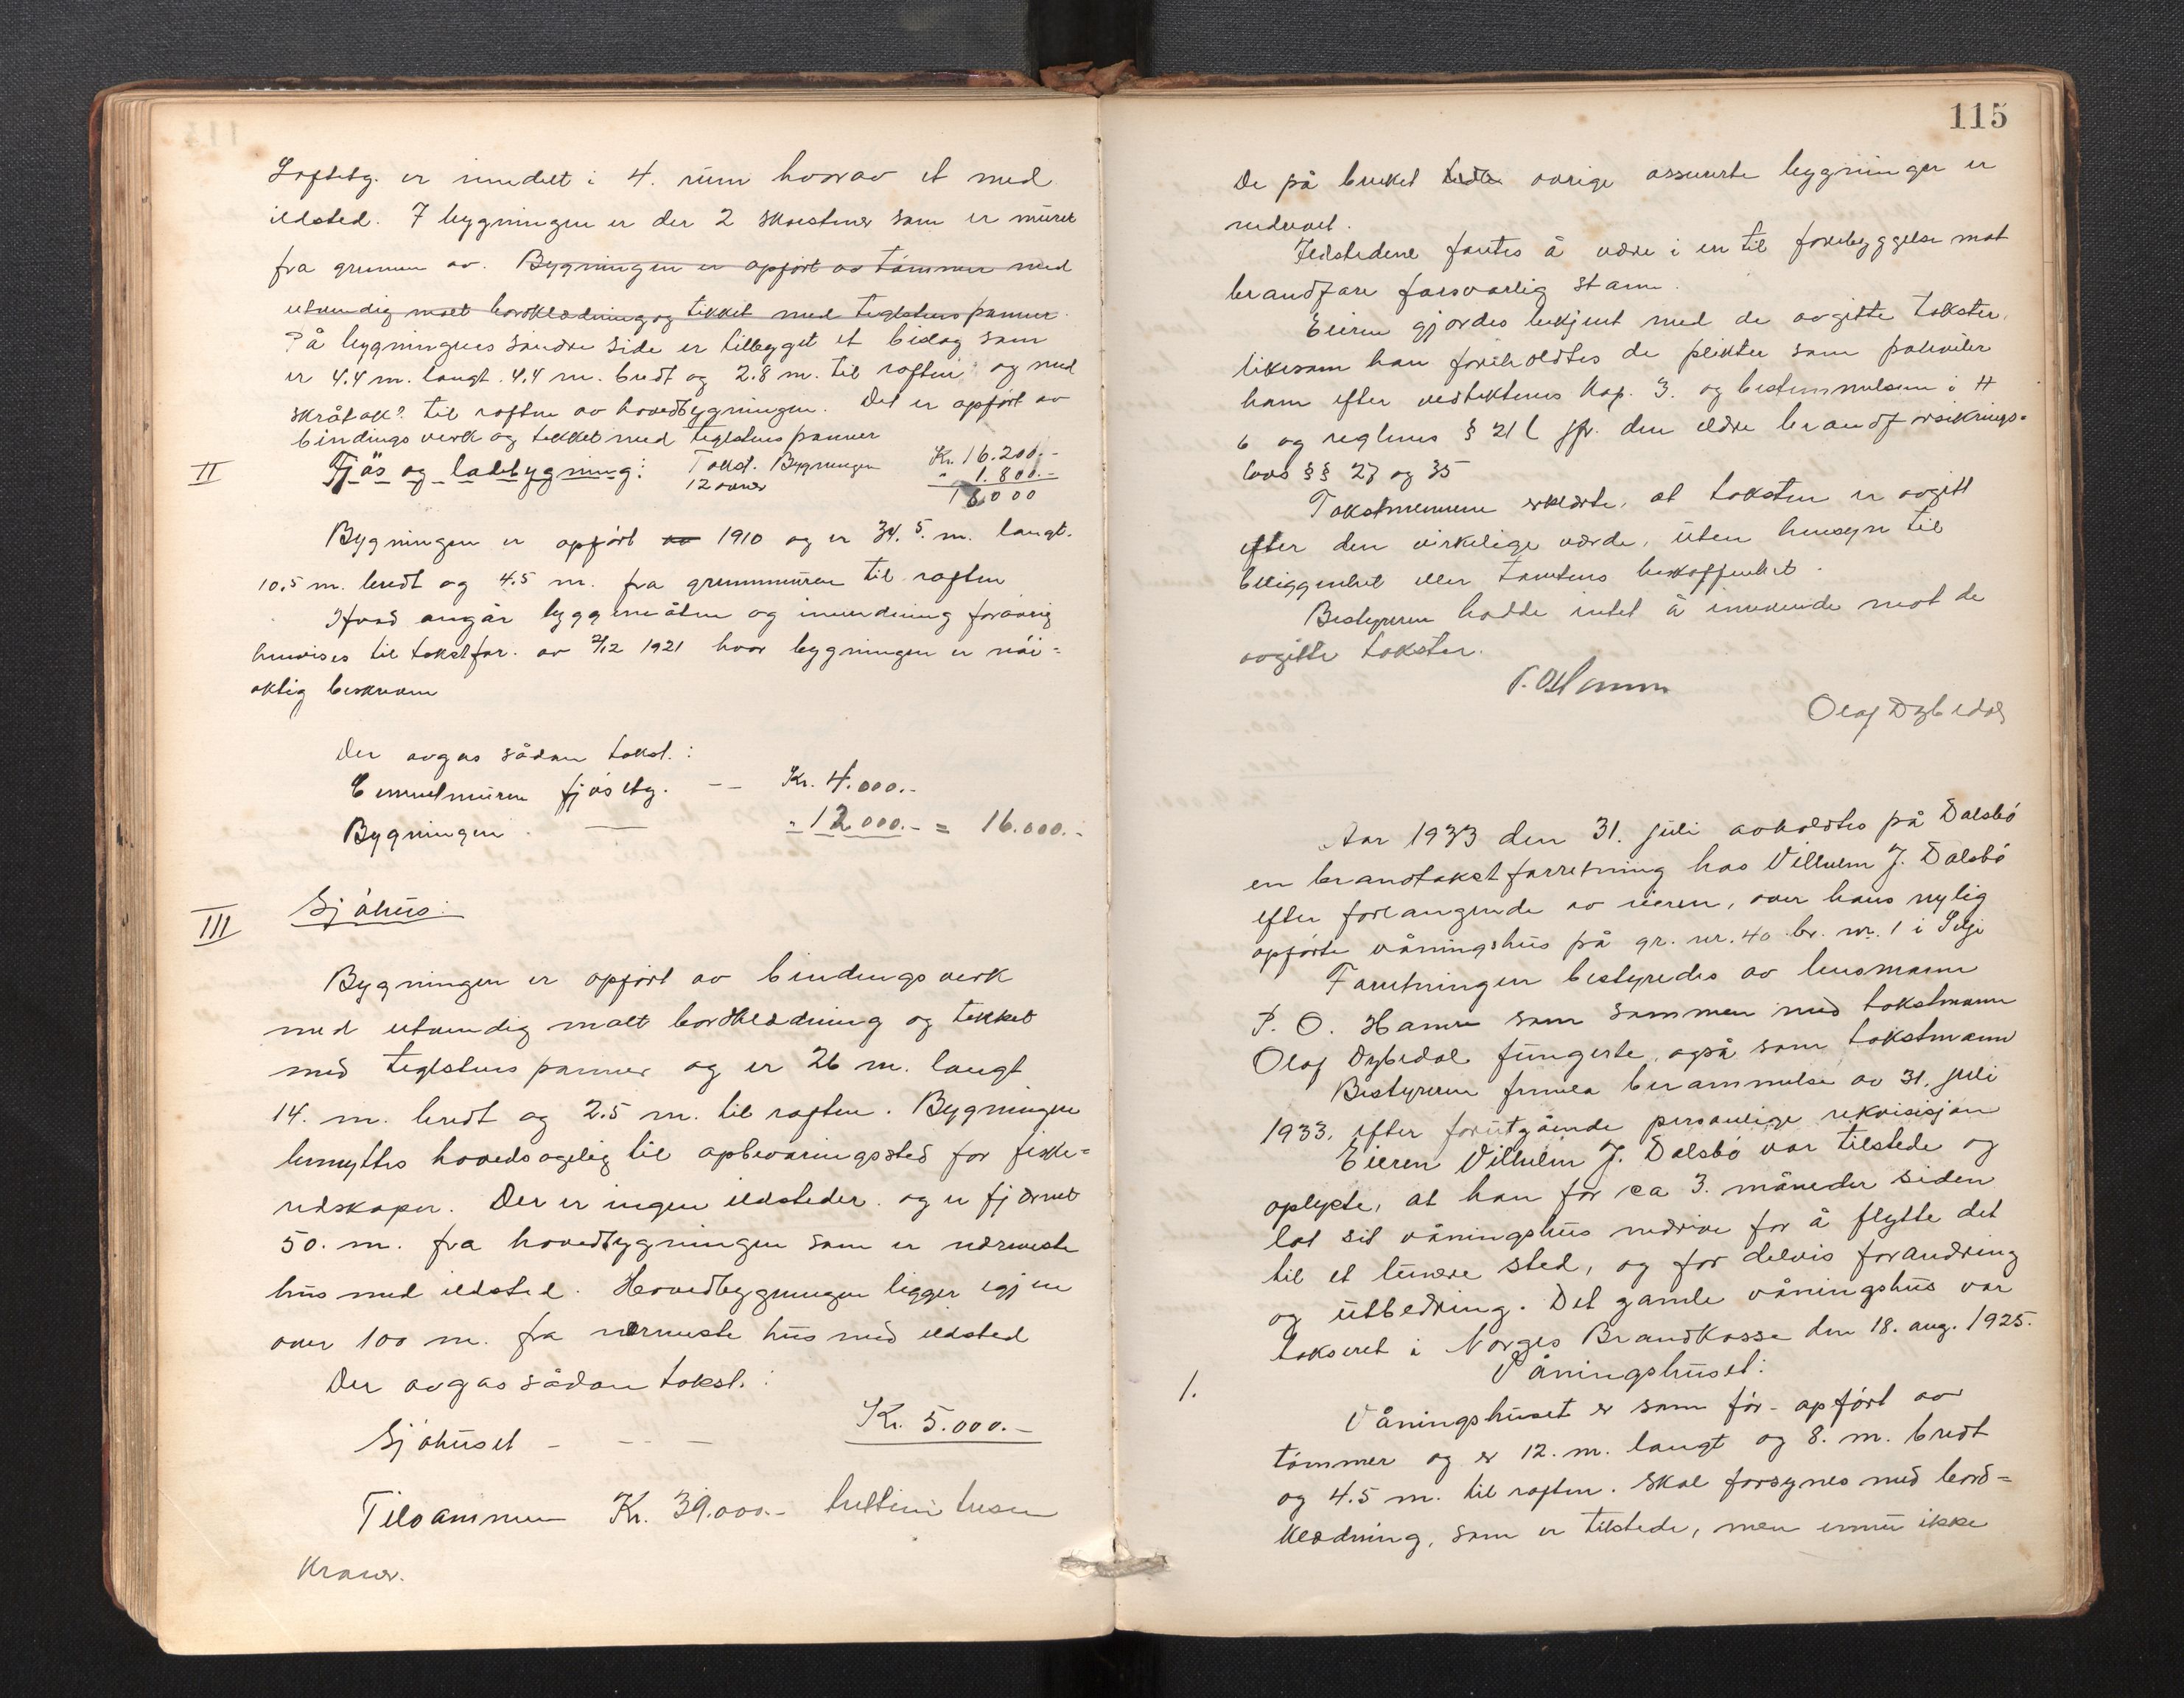 Loftetg. er inndelt i 4. rum hvorav et med
ildsted. I bygningen er der 2 skorstener som er muret
fra grunnen av. Bygningen er opført av tømmer med
utvendig malt bordklædning og tekket med teglstens panner.
På bygningens søndre side er tilbygget et bislag som
er 4.4 m. langt. 4.4 m. bredt og 2.8 m. til raften og med
skråtak? til raften av hovedbygningen. Det er opført av
bindingsverk og tekket med teglstens panner
II Fjøs og ladebygning: Takst. Bygningen Kr. 16.200.-
12 ovner " 1.800.-
18.000
Bygningen er opført av 1910 og er 34.5. m. langt.
10.5 m. bredt og 4.5 m. fra grunnmuren til raften
Hvad angår byggemåten og innredning forøvrig
henvises til takstfor. av 2/12 1921 hvor bygningen er nøi=
aktig beskreven
Der avgas sådan takst.:
Gemmelmuren fjøsbtg. -- Kr. 4.000.-
Bygningen. — " 12.000.- = 16.000.-
III Sjøhus:
Bygningen er opført av bindingsverk
med utvendig malt bordklædning og tekket
med teglstens panner og er 26 m. langt
14. m. bredt og 2.5 m. til raften. Bygningen
benyttes hovedsagelig til opbevaringssted for fiske=
redskaper. Der er ingen ildsteder og er fjernet
50. m. fra hovedbygningen som er nærmeste
hus med ildsted. Hovedbygningen ligger igjen
over 100 m. fra nærmeste hus med ildsted
Der avgas sådan takst.:
Sjøhuset - -- — Kr. 5.000.-
Tilsammen Kr. 39.000.- trettini tusen
kroner.
115
De på bruket øvrige assurerte bygninger er
nedrevet.
Ildstedene fantes å være i en til forebyggelse mot
brandfare forsvarlig stann.
Eieren gjordes bekjent med de avgitte takster,
likesom han foreholdtes de plikter som påhviler
ham efter vedtektenes kap. 3. og bestemmelsen i H
6 og reglenes § 21 l jfr. den eldre brandforsikrings=
lovs §§ 27 og 35
Takstmennene erklærte, at taksten er avgitt
efter den virkelige værde, uten hensyn til
beliggenhet eller tomtens beskaffenhet.
Bestyreren hadde intet å innvende mot de
avgitte takster.
P. O. Hamre
Olaf Dybedal
Aar 1933 den 31. juli avholdtes på Dalsbø
en brandtakstforretning hos Vilhelm J. Dalsbø
efter forlangende av eieren, over hans nylig
opførte våningshus på gr. nr. 40 br. nr. 1 i Selje
Forretningen bestyredes av lensmann
P. O. Hamre som sammen med takstmann
Olaf Dybedal fungerte også som takstmann
Bestyreren fremla berammelse av 31. juli
1933, efter forutgående personlige rekvisisjon
Eieren Vilhelm J. Dalsbø var tilstede og
oplyste, at han for ca 3. måneder siden
lot sit våningshus nedrive for å flytte det
til et lunere sted, og for delvis forandring
og utbedring. Det gamle våningshus var
taksert i Norges Brandkasse den 18. aug. 1925.
1. Våningshuset:
Våningshuset er som før - opført av
tømmer og er 12. m. langt og 8. m. bredt
og 4.5 m. til raften. Skal forsynes med bord=
klædning, som er tilstede, men ennu ikke